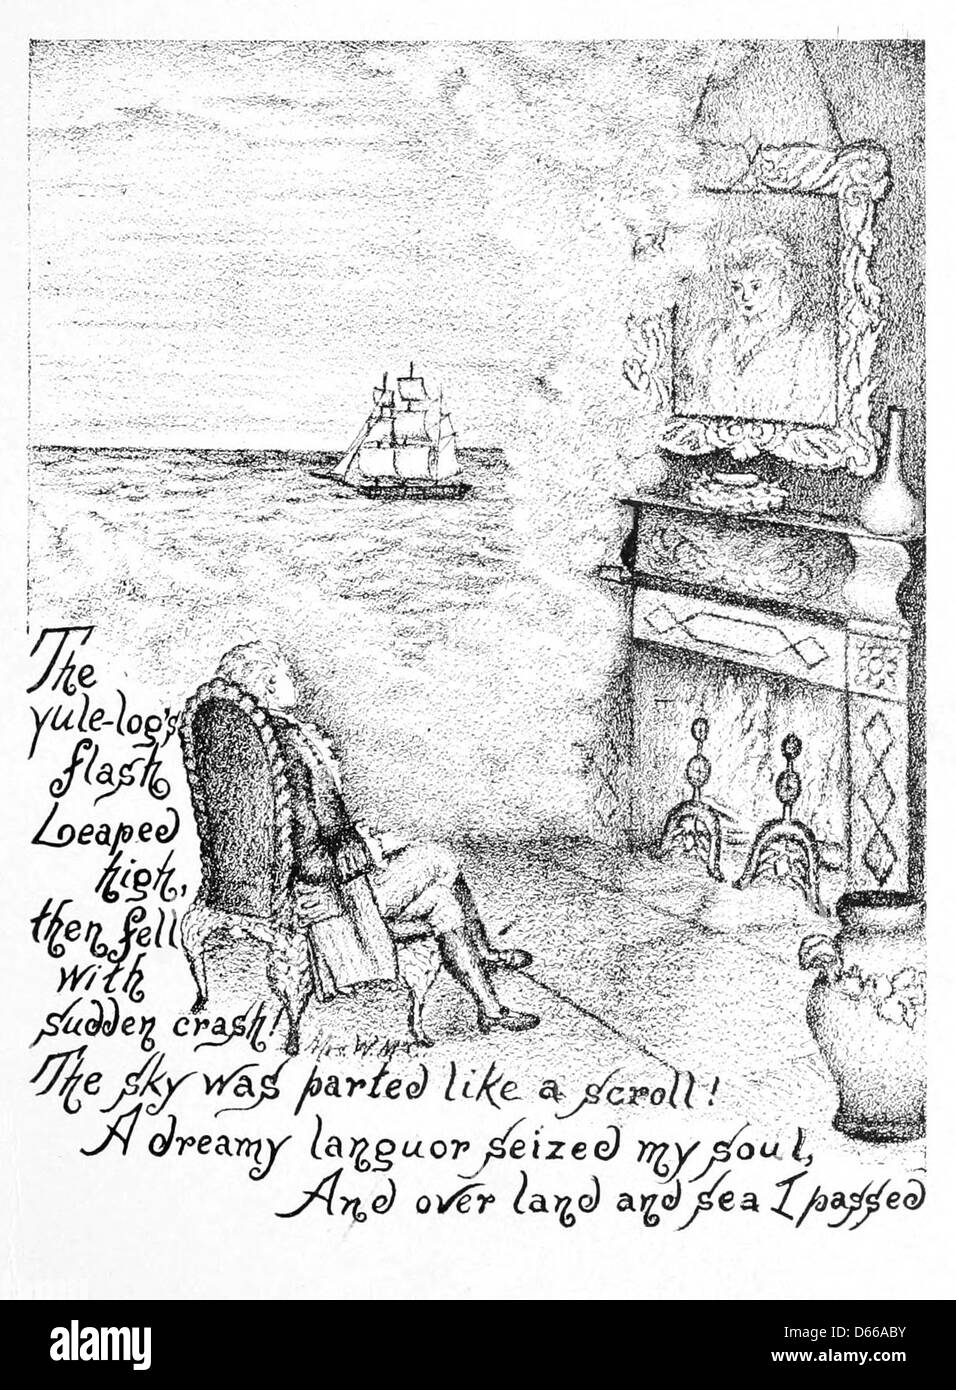 The
yule-log's
flash
Leaped
high,
then fell
with
sudden crash!
The sky was parted like a scroll!
A dreamy languor seized my soul,
And over land and sea I passed
alamy
Image ID: D66ABY
www.alamy.com